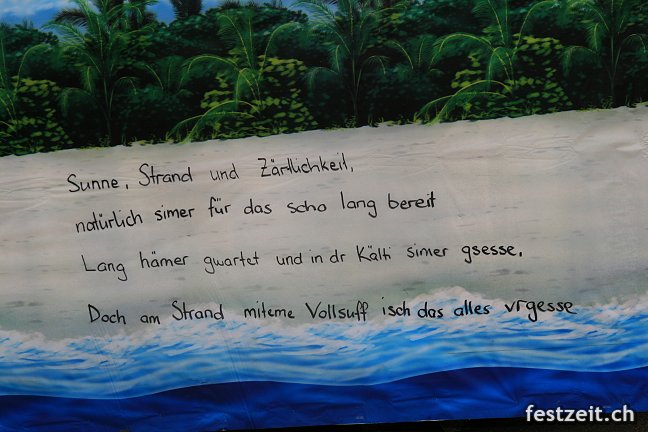 Sunne, Strand und Zärtlichkeit,
natürlich simer für das scho lang bereit
Lang hämer gwartet und in dr Kälti simer gsesse,
Doch am Strand miteme Vollsuff isch das alles vrgesse
festzeit.ch